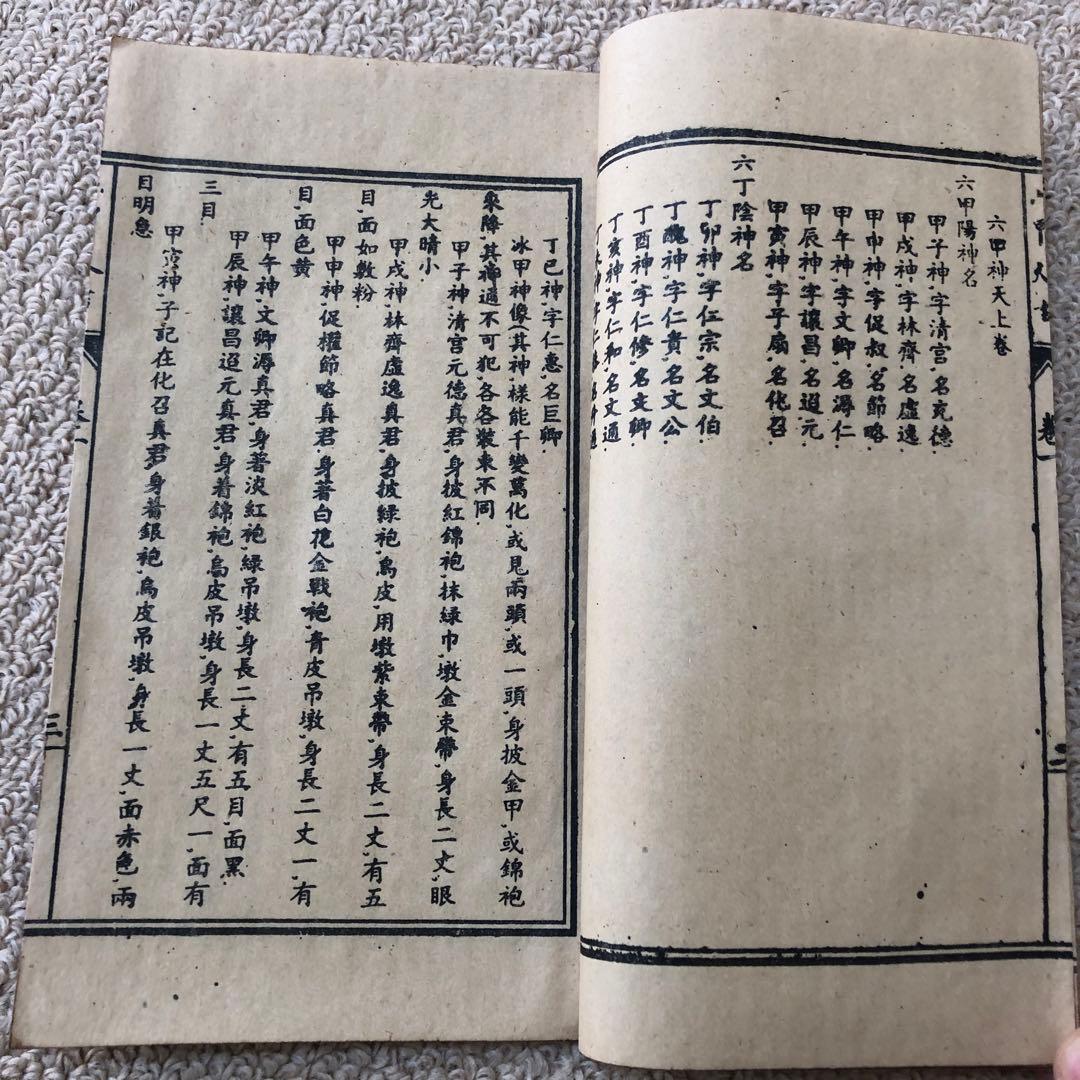 卷一
六甲神天上卷
六甲陽神名
甲子神,字清宫,名元德.
甲戌神,字林齊,名虚逸.
甲申神,字促叔,名節略
甲午神,字文卿,名潯仁
甲辰神,字讓昌,名迢元
甲寅神,字子扇,名化召
六丁陰神名
丁卯神,字仁宗,名文伯
丁醜神,字仁貴,名文公
丁酉神,字仁修,名文卿.
丁亥神,字仁和,名文通
丁巳神,字仁惠,名巨卿.
冰甲神像(其神,様能千變萬化,或見兩頭,或一頭,身披金甲,或錦袍
衆降,其神通不可犯各各裝束不同
甲子神,清宫元德真君,身披紅錦袍,抹緑巾,墩金束帶,身長二丈,眼
先大睛小
甲戌神,林齊虚逸真君,身披緑袍,烏皮,用墩紫束帶,身長二丈,有五
目,面如數粉.
甲申神促權節略真君,身著白花金戰袍,青皮吊墩,身長二丈一,有
目,面色黄
甲午神,文卿潯真君,身著淡紅袍,緑吊墩,身長二丈,有五目,面黑.
甲辰神,讓昌迢元真君,身着錦袍,烏皮吊墩,身長一丈五尺一,面有
三目.
甲神,子記在化召真君,身著銀袍,烏皮吊墩,身長一丈,面赤色,兩
目明急
三